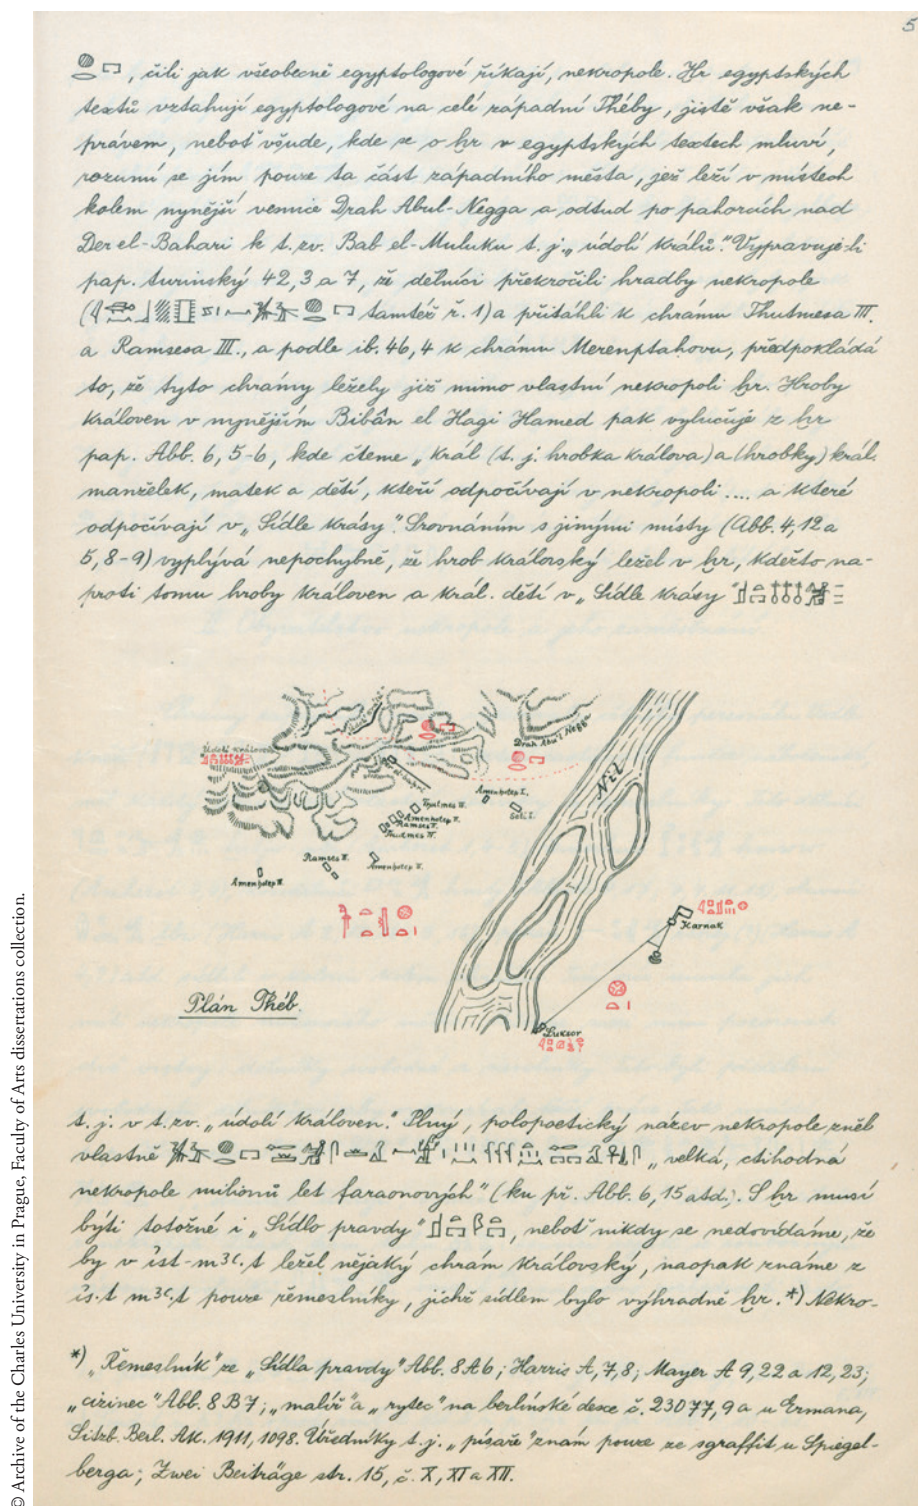 5
𓐍𓂋 𓉐, čili jak všeobecně egyptologové říkají, nekropole. Hr egyptských
textů vztahují egyptologové na celé západní Théby, jistě však ne-
právem, neboť všude, kde se o ḫr v egyptských textech mluví,
rozumí se jím pouze ta část západního města, jež leží v místech
kolem nynější vesnice Drah Abul-Negga a odtud po pahorcích nad
Der el-Bahari k t.zv. Bab el-Muluku t.j. „údolí králů". Vypravuje-li
pap. turinský 42, 3 a 7, že dělníci překročili hradby nekropole
( tamtéž ř. 1) a přitáhli k chrámu Thutmesa III.
a Ramsesa III., a podle ib. 46, 4 k chrámu Merenptahovu, předpokládá
to, že tyto chrámy ležely již mimo vlastní nekropoli ḫr. Hroby
královen v nynějším Bibân el Hagi Hamed pak vylučuje z ḫr
pap. Abb. 6, 5-6, kde čteme „král (t.j. hrobka králova) a (hrobky) král.
manželek, matek a dětí, kteří odpočívají v nekropoli .... a které
odpočívají v „Sídle krásy". Srovnáním s jinými místy (Abb. 4, 12 a
5, 8-9) vyplývá nepochybně, že hrob královský ležel v ḫr, kdežto na-
proti tomu hroby královen a král. dětí v „Sídle krásy"
Údolí královen
Drah Abu'l Negga
Nil
Amenhotep I.
Seti I.
Thutmes III.
Amenhotep II.
Ramses II.
Thutmes IV.
Ramses III.
Amenhotep III.
Karnak
Luksor
Plán Théb.
t.j. v t.zv. „údolí královen". Plný, polopoetický název nekropole zněl
vlastně „velká, ctihodná
nekropole milionů let faraonových" (ku př. Abb. 6, 15 atd.). S ḫr musí
býti totožné i „Sídlo pravdy" , neboť nikdy se nedovídáme, že
by v ist-m3ʿ.t ležel nějaký chrám královský, naopak známe z
is.t m3ʿ.t pouze řemeslníky, jichž sídlem bylo výhradně ḫr. *) Nekro-
*) „Řemeslník" ze „Sídla pravdy" Abb. 8 A 6; Harris A, 7, 8; Mayer A 9, 22 a 12, 23;
„cizinec" Abb. 8 B 7; „malíř" a „rytec" na berlínské desce č. 23077, 9 a u Ermana,
Sitzb. Berl. Ak. 1911, 1098. Úředníky t.j. „písaře" znám pouze ze sgraffit u Spiegel-
berga; Zwei Beiträge str. 15, č. X, XI a XII.
© Archive of the Charles University in Prague, Faculty of Arts dissertations collection.